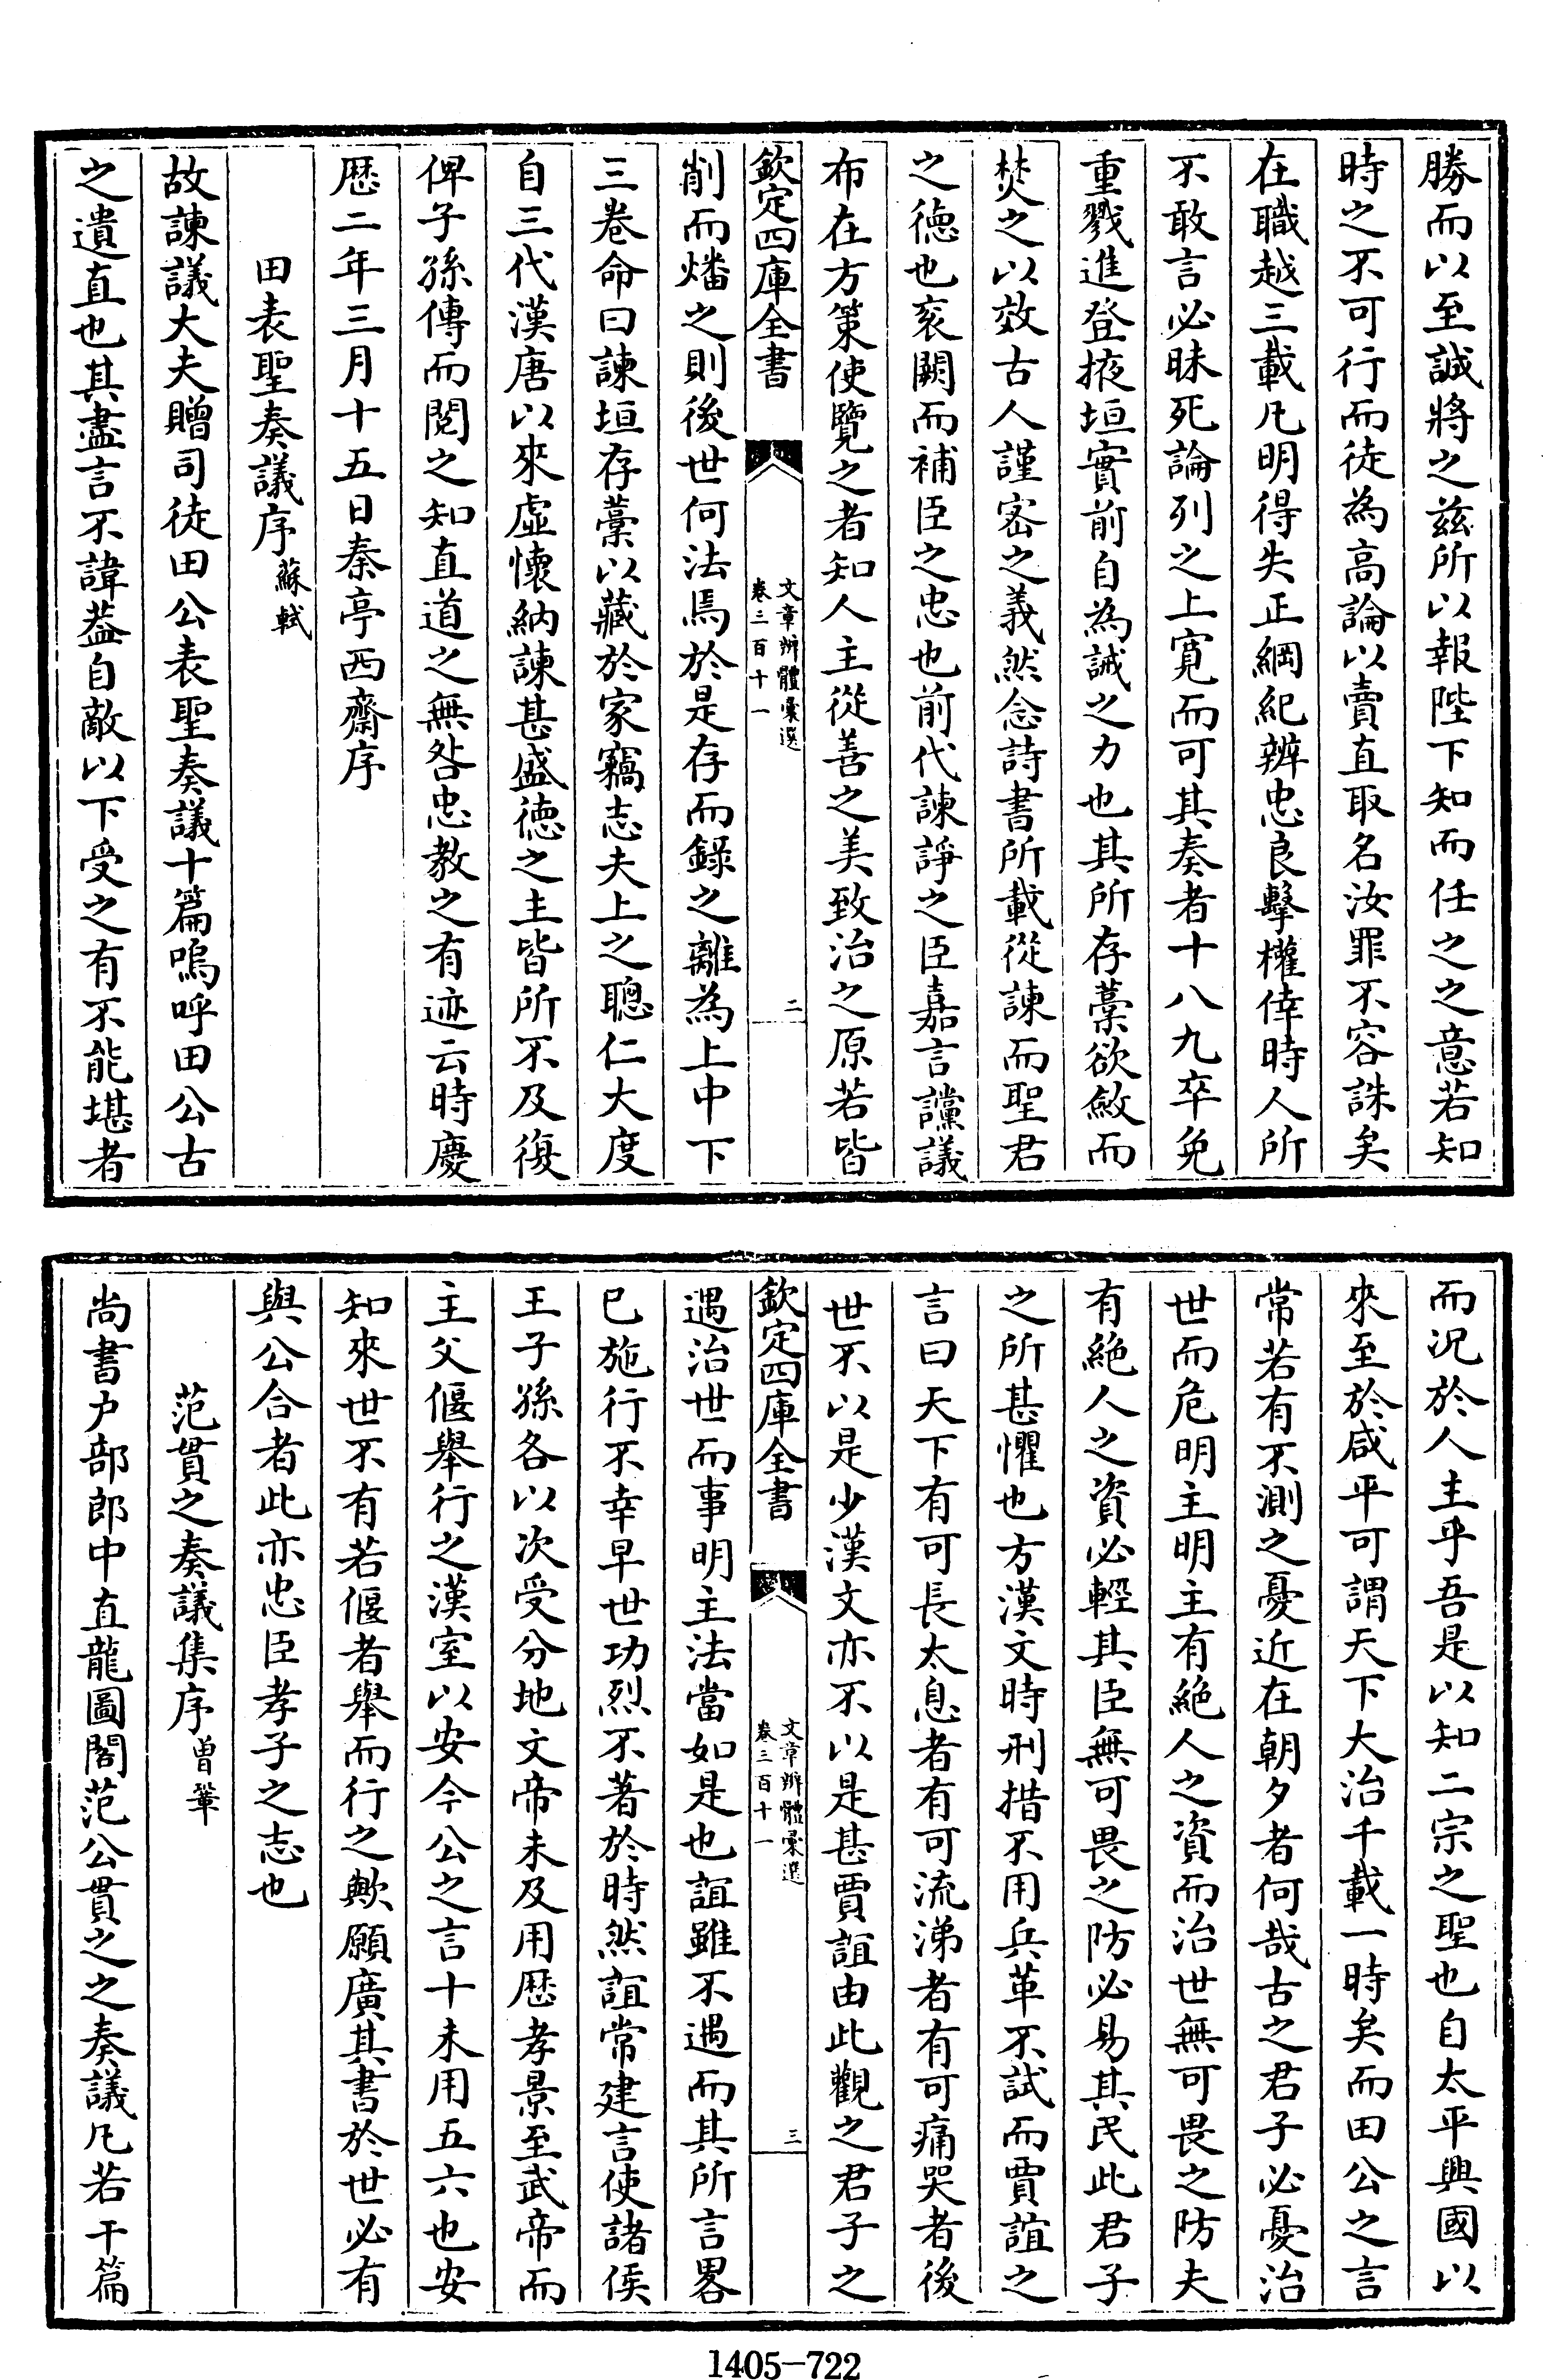 勝而以至誠將之茲所以報陛下知而任之之意若知
時之不可行而徒為高論以賣直取名汝罪不容誅矣
在職越三載凡明得失正綱紀辨忠良擊權倖時人所
不敢言必昧死論列之上寛而可其奏者十八九卒免
重戮進登掖垣實前自為誡之力也其所存藁欲斂而
焚之以效古人謹宻之義然念詩書所載從諫而聖君
之徳也衮闕而補臣之忠也前代諫諍之臣嘉言讜議
布在方策使覽之者知人主從善之美致治之原若皆
欽定四庫全書
文章辨體彚選
卷三百十一
二
削而燔之則後世何法焉於是存而錄之離為上中下
三巻命曰諫垣存藁以藏於家竊志夫上之聰仁大度
自三代漢唐以來虛懷納諫甚盛徳之主皆所不及復
俾子孫傳而閲之知直道之無咎忠教之有迹云時慶
厯二年三月十五日秦亭西齋序
田表聖奏議序蘇軾
故諫議大夫贈司徒田公表聖奏議十篇嗚呼田公古
之遺直也其盡言不諱葢自敵以下受之有不能堪者
而況於人主乎吾是以知二宗之聖也自太平興國以
來至於咸平可謂天下大治千載一時矣而田公之言
常若有不測之憂近在朝夕者何哉古之君子必憂治
世而危明主明主有絶人之資而治世無可畏之防夫
有絶人之資必輕其臣無可畏之防必易其民此君子
之所甚懼也方漢文時刑措不用兵革不試而賈誼之
言曰天下有可長太息者有可流涕者有可痛哭者後
世不以是少漢文亦不以是甚賈誼由此觀之君子之
欽定四庫全書
文章辨體彚選
卷三百十一
三
遇治世而事明主法當如是也誼雖不遇而其所言畧
已施行不幸早世功烈不著於時然誼常建言使諸侯
王子孫各以次受分地文帝未及用厯孝景至武帝而
主父偃舉行之漢室以安今公之言十未用五六也安
知來世不有若偃者舉而行之歟願廣其書於世必有
與公合者此亦忠臣孝子之志也
范貫之奏議集序曽鞏
尚書户部郎中直龍圖閣范公貫之之奏議凡若干篇
1405-722